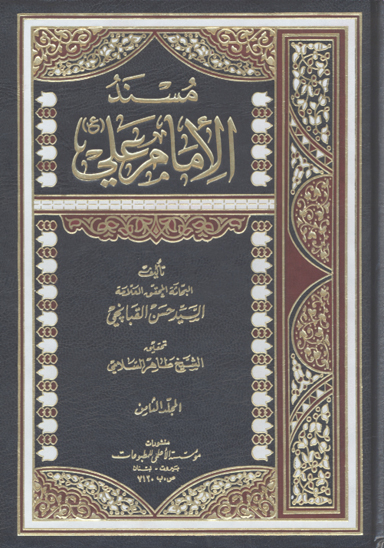 مسند
الإمام علي (ع)
تأليف
البحاثة المحقق العلامة
السيد حسن القبانجي
تحقيق
الشيخ طاهر السلامي
المجلد الثامن
منشورات
مؤسسة الأعلمي للمطبوعات
بيروت - لبنان
ص.ب ٧١٢٠